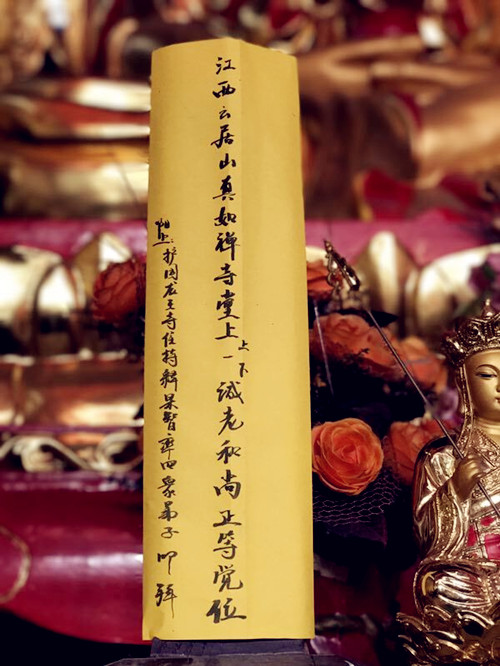 江西云居山真如禪寺堂上上一下诚老和尚正等觉位
护国龙王寺住持释杲智率四衆弟子叩拜